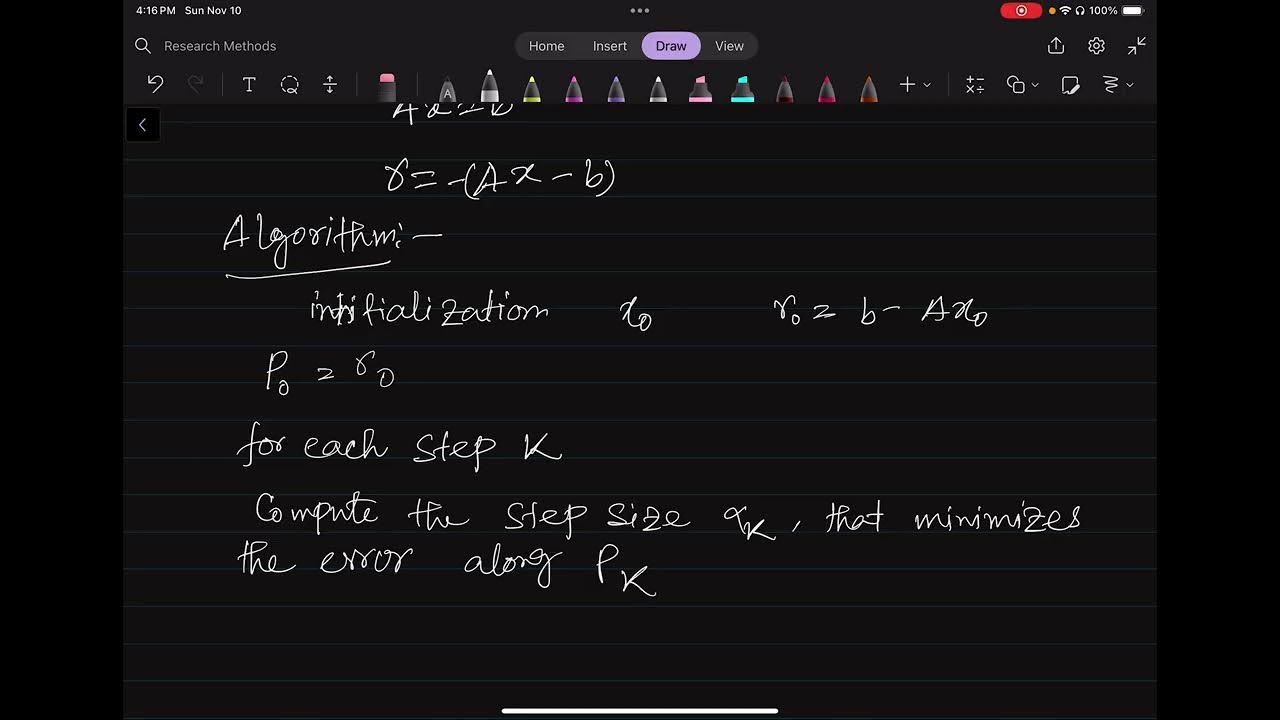 4:16 PM Sun Nov 10 100%
Research Methods Home Insert Draw View
T A
r = -(Ax - b)
Algorithm:-
initialization x₀ r₀ = b - Ax₀
P₀ = r₀
for each step K
Compute the step size α_K, that minimizes
the error along P_K